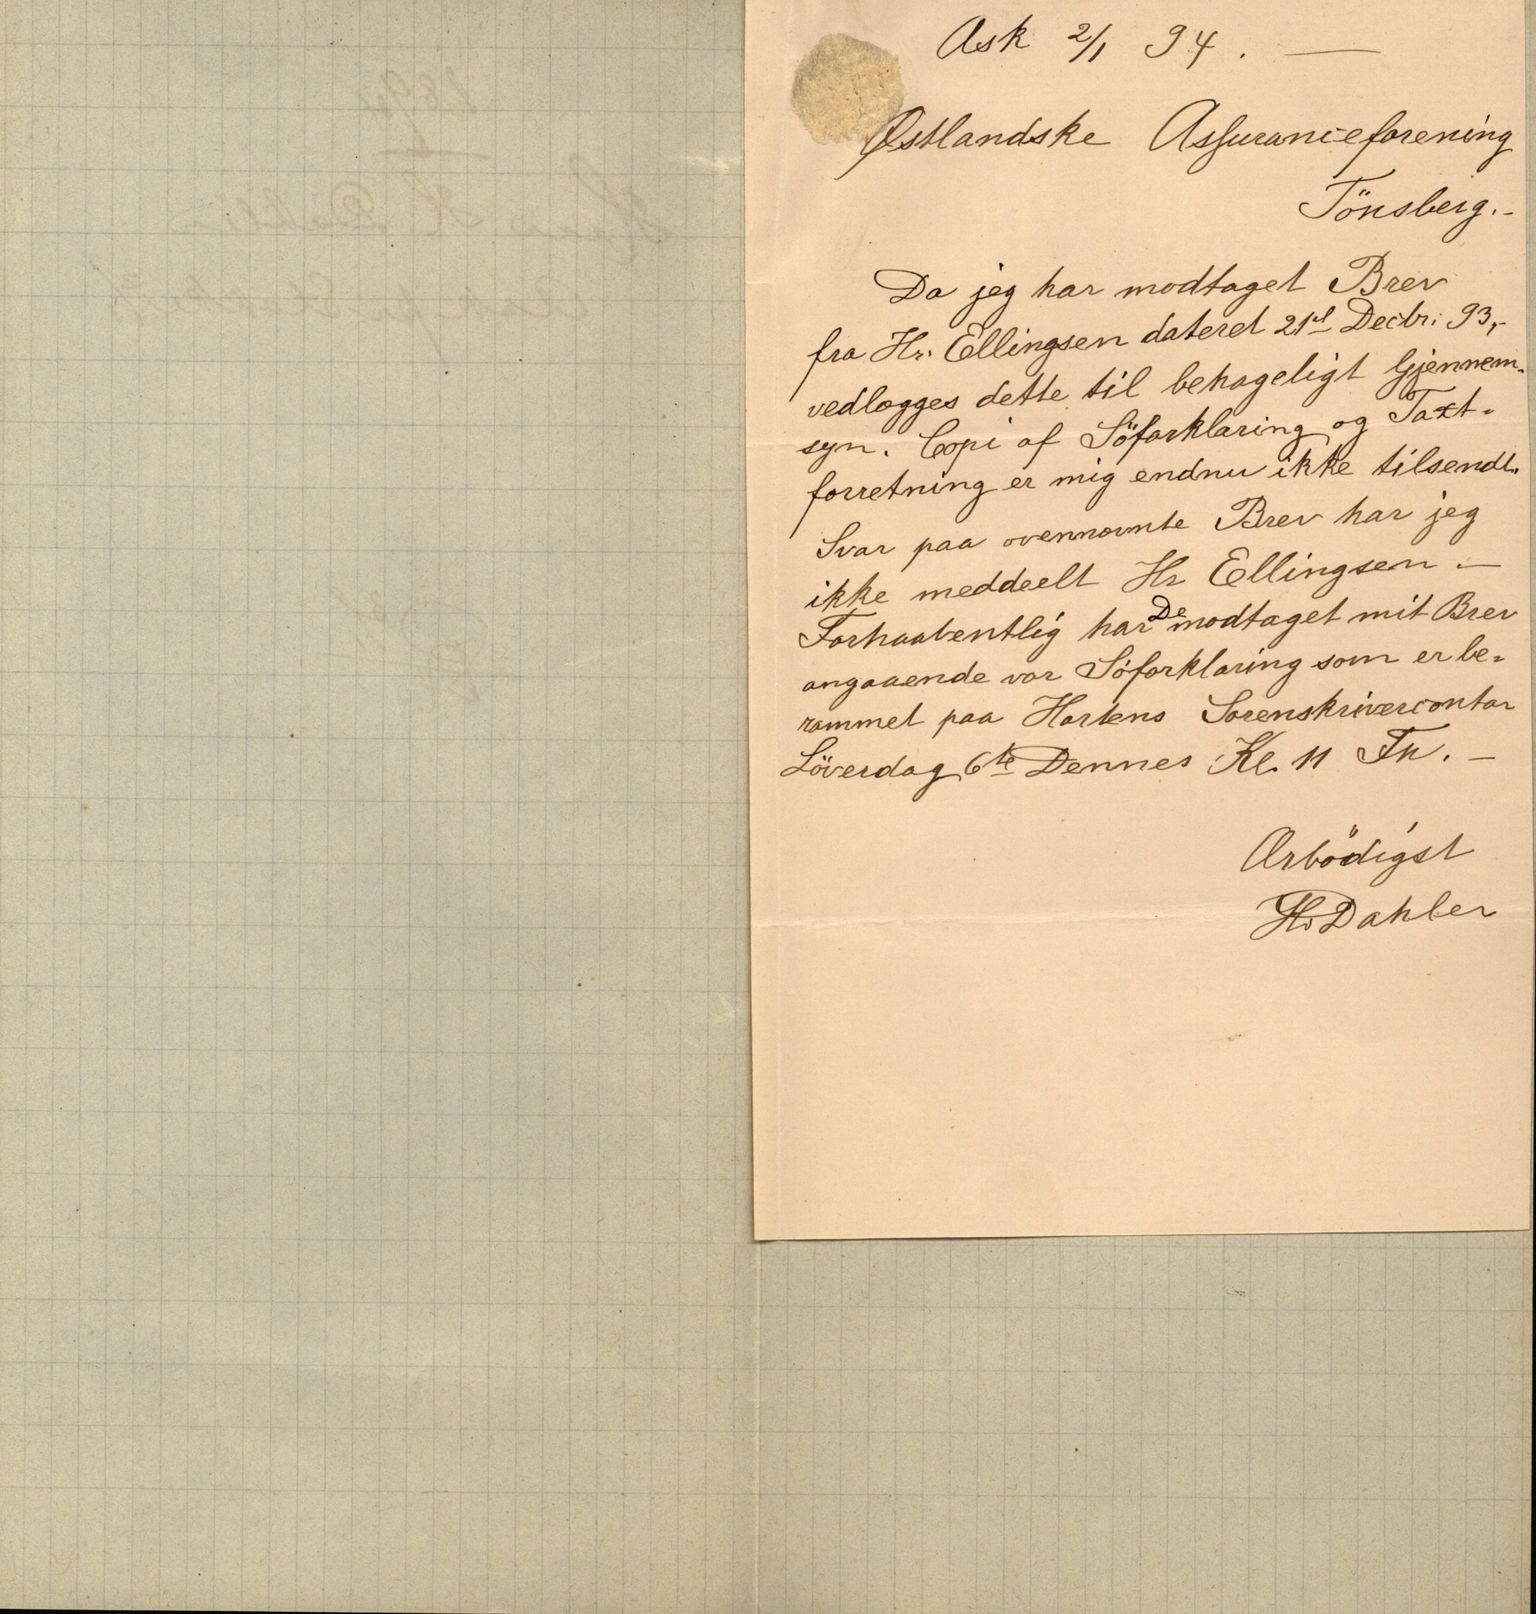 Ask 2/1 94. —
Østlandske Assuranceforening
Tönsberg.-
Da jeg har modtaget Brev
fra Hr. Ellingsen dateret 21st Decbr: 93,-
vedlægges dette til behageligt Gjennem-
syn. Copi af Söforklaring og Taxt-
forretning er mig endnu ikke tilsendt.
Svar paa ovennævnte Brev har jeg
ikke meddeelt Hr Ellingsen. —
Forhaabentlig har De modtaget mit Brev
angaaende vor Söforklaring som er be-
rammet paa Hortens Sorenskrivercontor
Löverdag 6te Dennes Kl. 11 Fm. —
Ærbödigst
H. Dahler